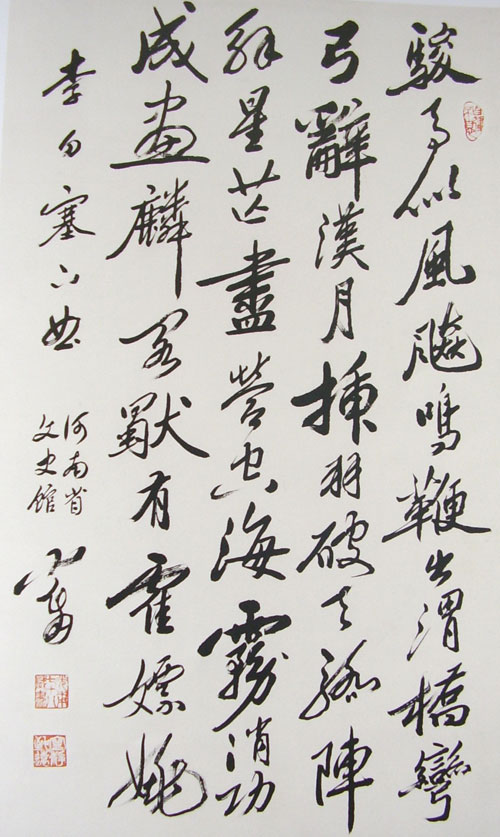 駿馬似風飈鳴鞭出渭橋彎
弓辭漢月插羽破天驕陣
解星芒盡營空海霧消功
成畫麟阁獨有霍嫖姚
李白塞下曲
河南省
文史馆